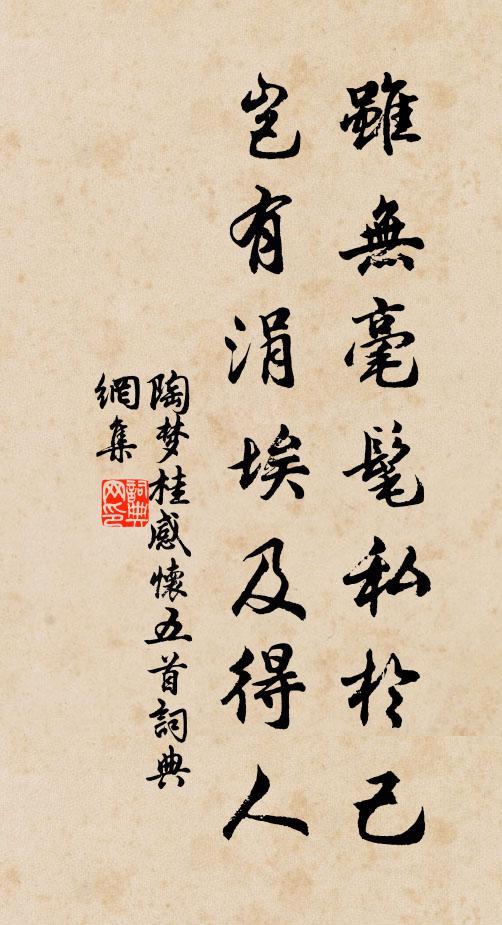 雖無毫髦私於己
豈有涓埃及得人
陶梦桂感懷五首詞典
網集
詞典
网印